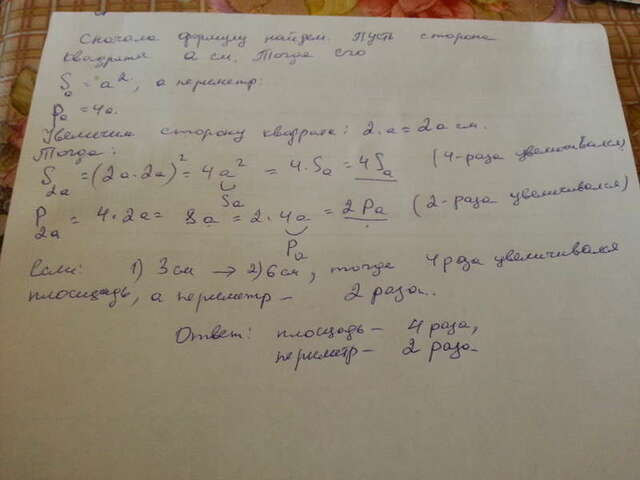 Сначала формулу найдем. Пусть сторона
квадрата a см. Тогда его
Sa = a², а периметр:
Pa = 4a.
Увеличим сторону квадрата: 2·a = 2a см.
Тогда:
S2a = (2a·2a)² = 4a² = 4·Sa = 4Sa (4-раза увеличивался)
Sa
P2a = 4·2a = 8a = 2·4a = 2Pa (2-раза увеличивался)
Pa
Если: 1) 3см → 2) 6см, тогда 4 раза увеличивался
площадь, а периметр – 2 раза.
Ответ: площадь – 4 раза,
периметр – 2 раза.